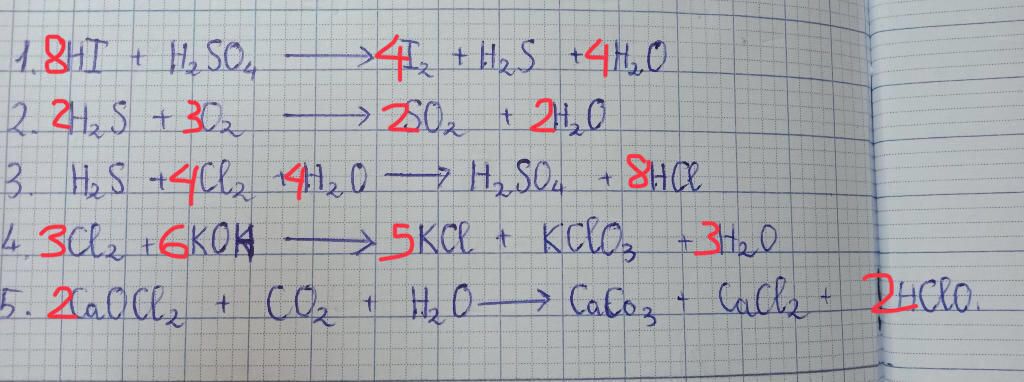 1. 8HI + H₂SO₄ ⟶ 4I₂ + H₂S + 4H₂O
2. 2H₂S + 3O₂ ⟶ 2SO₂ + 2H₂O
3. H₂S + 4Cl₂ + 4H₂O ⟶ H₂SO₄ + 8HCl
4. 3Cl₂ + 6KOH ⟶ 5KCl + KClO₃ + 3H₂O
5. 2CaOCl₂ + CO₂ + H₂O ⟶ CaCo₃ + CaCl₂ + 2HClO.